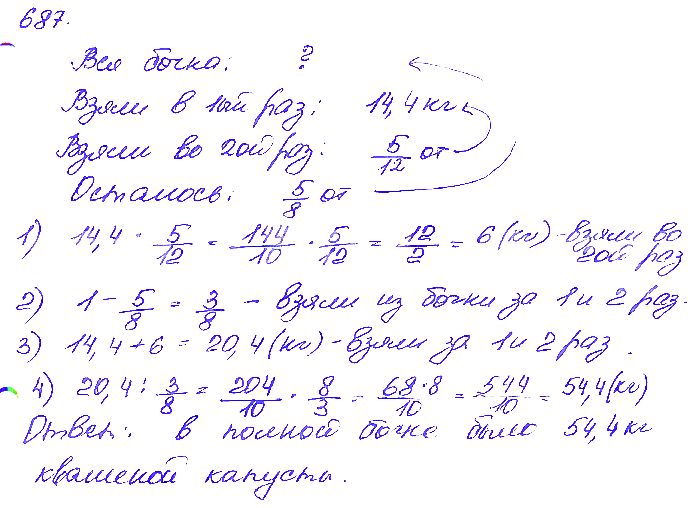 687.
Вся бочка: ?
Взяли в 1ый раз: 14,4 кг
Взяли во 2ой раз: 5/12 от
Осталось: 5/8 от
1) 14,4 · 5/12 = 144/10 · 5/12 = 12/2 = 6 (кг) - взяли во 2ой раз
2) 1 - 5/8 = 3/8 - взяли из бочки за 1 и 2 раз.
3) 14,4 + 6 = 20,4 (кг) - взяли за 1 и 2 раз.
4) 20,4 : 3/8 = 204/10 · 8/3 = 68·8/10 = 544/10 = 54,4 (кг)
Ответ: в полной бочке было 54,4 кг
квашеной капусты.